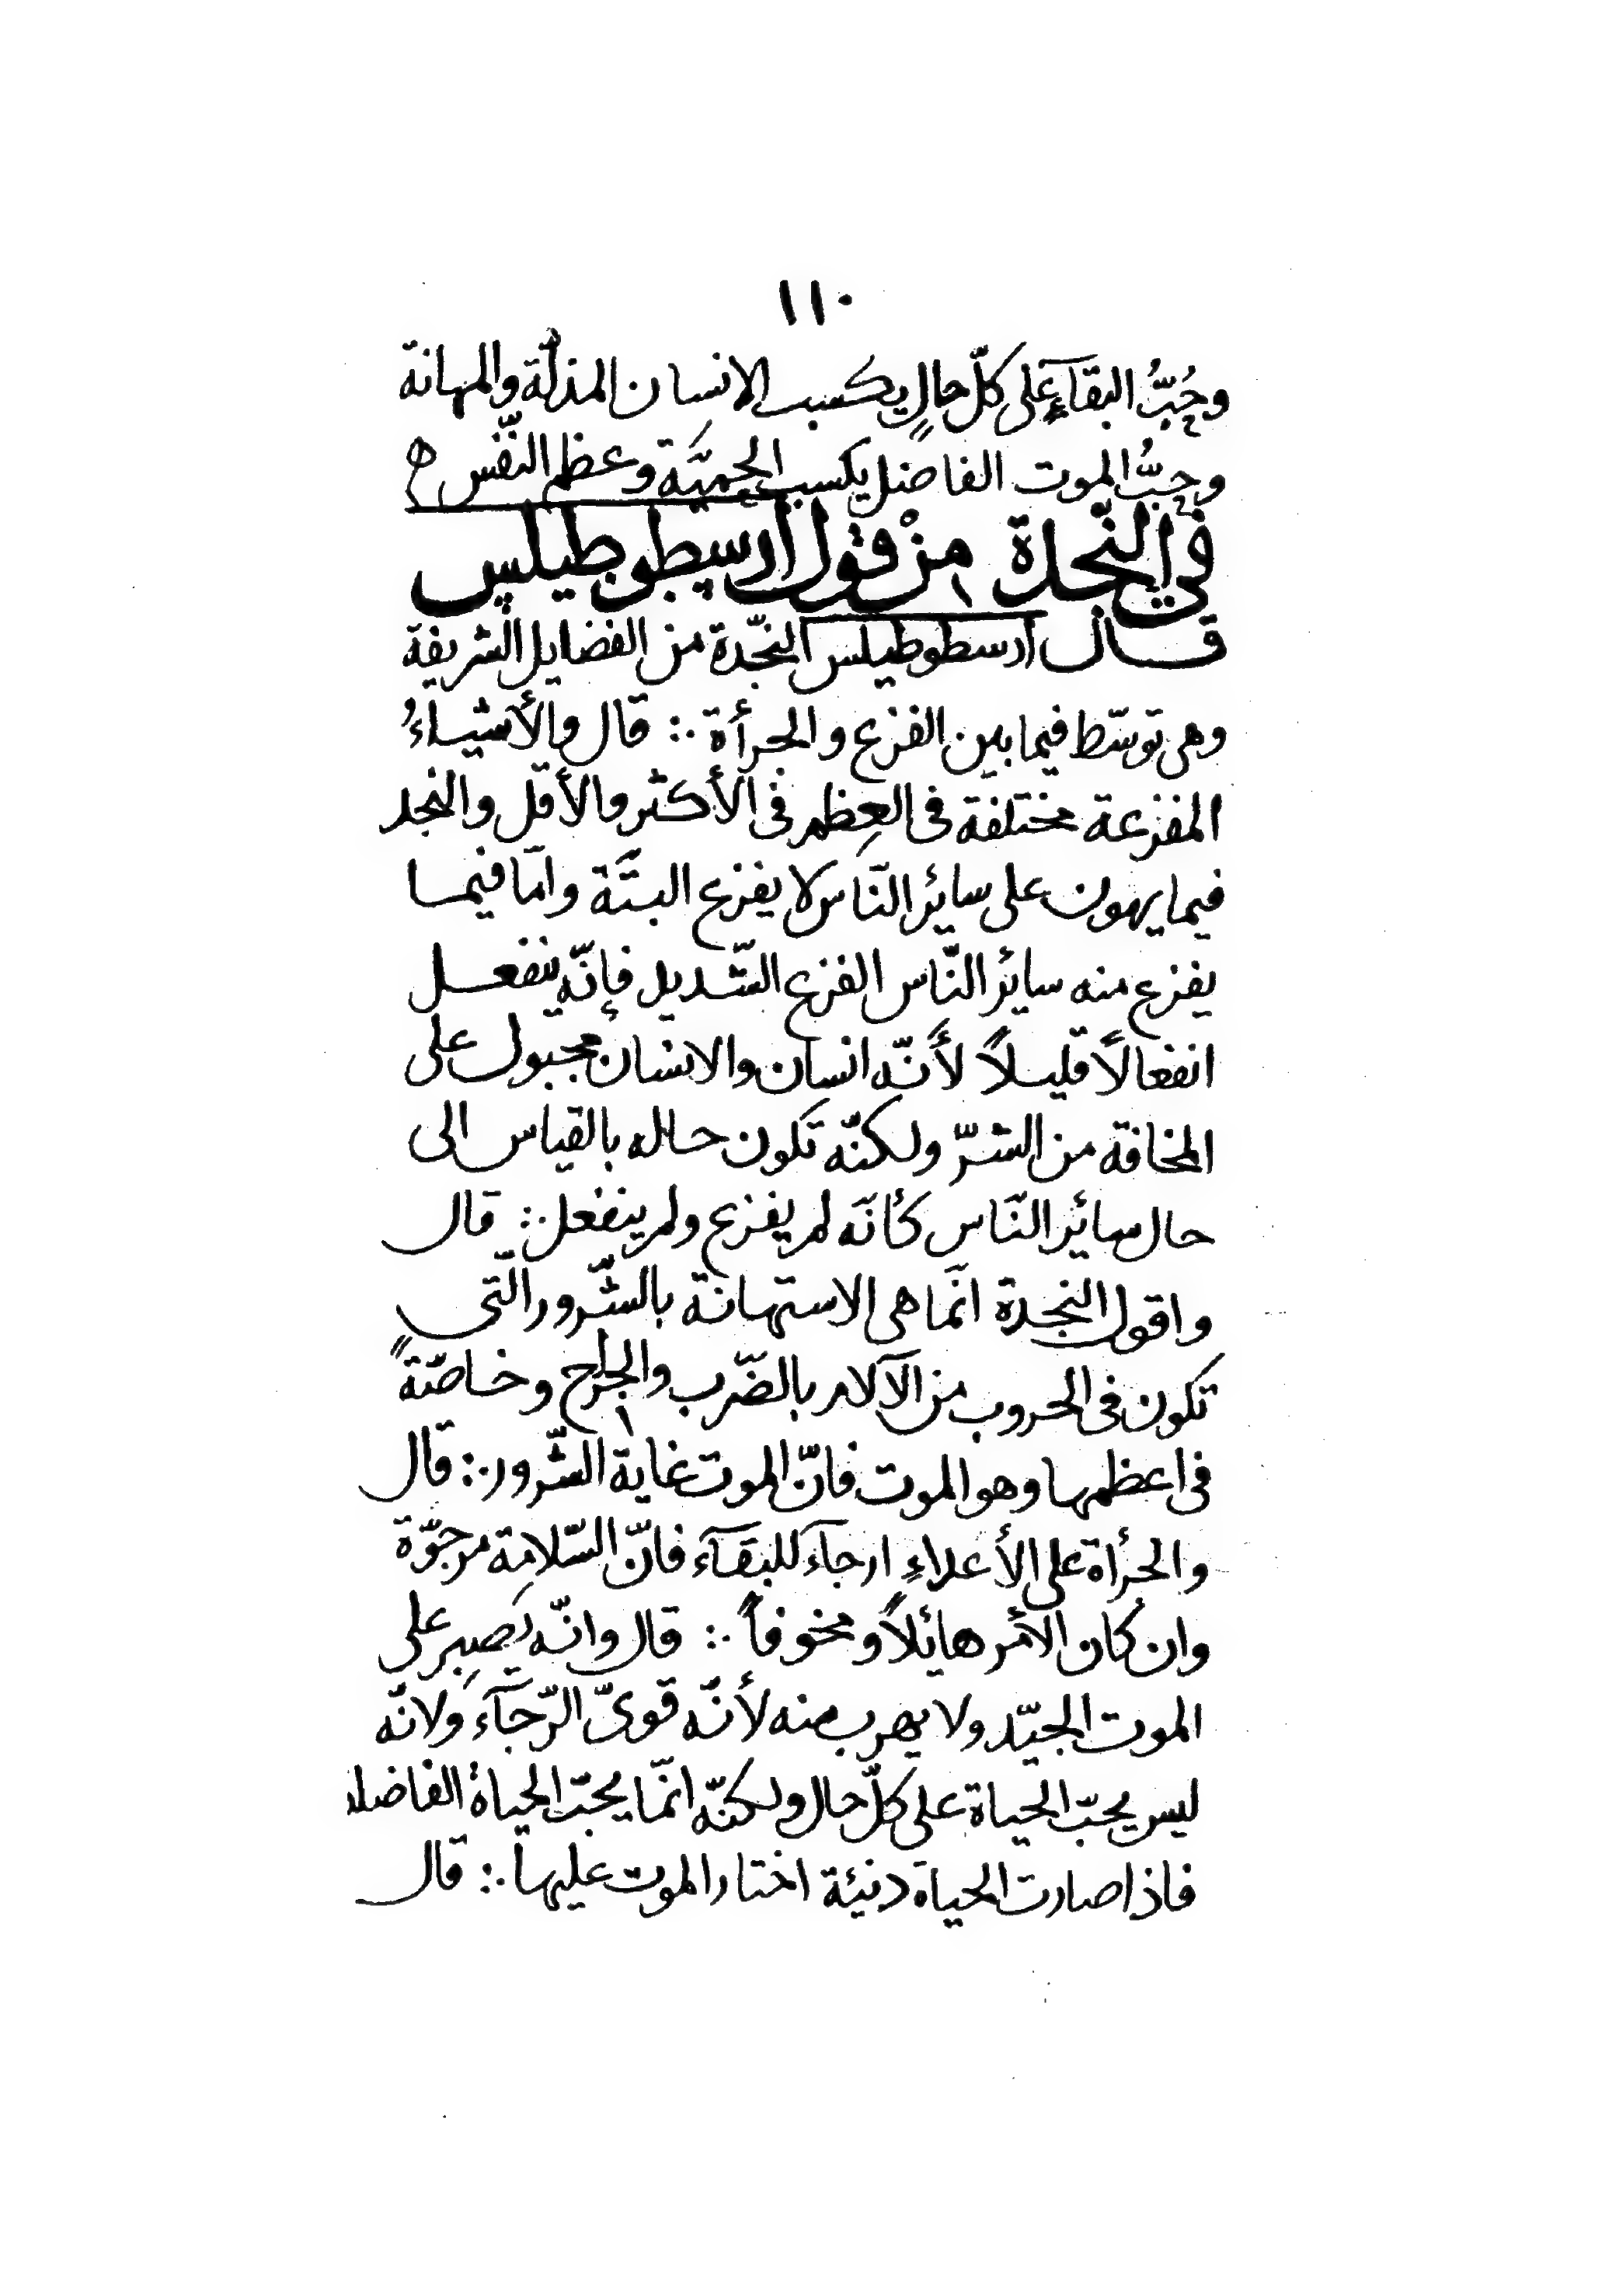 ١١٠
وحُبُّ البقآءِ على كلّ حالٍ يكسب الانسان المذلّة والمهانة
وحبُّ الموت الفاضل يكسب الحميَّة وعظم النّفس ه
في النّجدة من قول أرسطوطيلس
قال أرسطوطيلس النّجدة من الفضايل الشريفة
وهى توسّط فيما بين الفزع والجرأة ∴ قال والأشياءُ
المفزعة مختلفة فى العِظم فى الأكثر والأقل والنجد
فيما يهون على سائر النّاس لا يفزع البتَّة وامّا فيما
يفزع منه سائر النّاس الفزع الشّديد فإنّه ينفعل
انفعالاً قليلاً لأنّه انسان والانسان مجبول على
المخافة من الشرّ ولكنّه تكون حاله بالقياس الى
حال سائر النّاس كأنّه لم يفزع ولم ينفعل ∴ قال
واقول النجدة انّما هى الاستهانة بالشّرور الّتى
تكون فى الحروب من الآلام بالضّرب والجراح وخاصّةً
فى اعظمها وهو الموت فانّ الموت غاية الشّرور ∴ قال
والجرأة على الأعداءِ ارجآء للبقآء فانّ السّلامة مرجوّة
وان كان الأمر هائلاً ومخوفاً ∴ قال وانّه يَصبِر على
الموت الجيّد ولا يهرب منه لأنّه قوىّ الرّجآء ولانّه
ليس يحبّ الحياة على كلّ حال ولكنّه انّما يحبّ الحياة الفاضلة
فاذا صارت الحياة دنيئة اختار الموت عليها ∴ قال